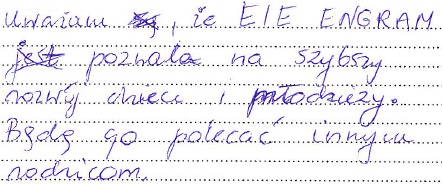 Uważam, że EIE ENGRAM
pozwala na szybszy
rozwój dzieci i młodzieży.
Będę go polecać innym
rodzicom.